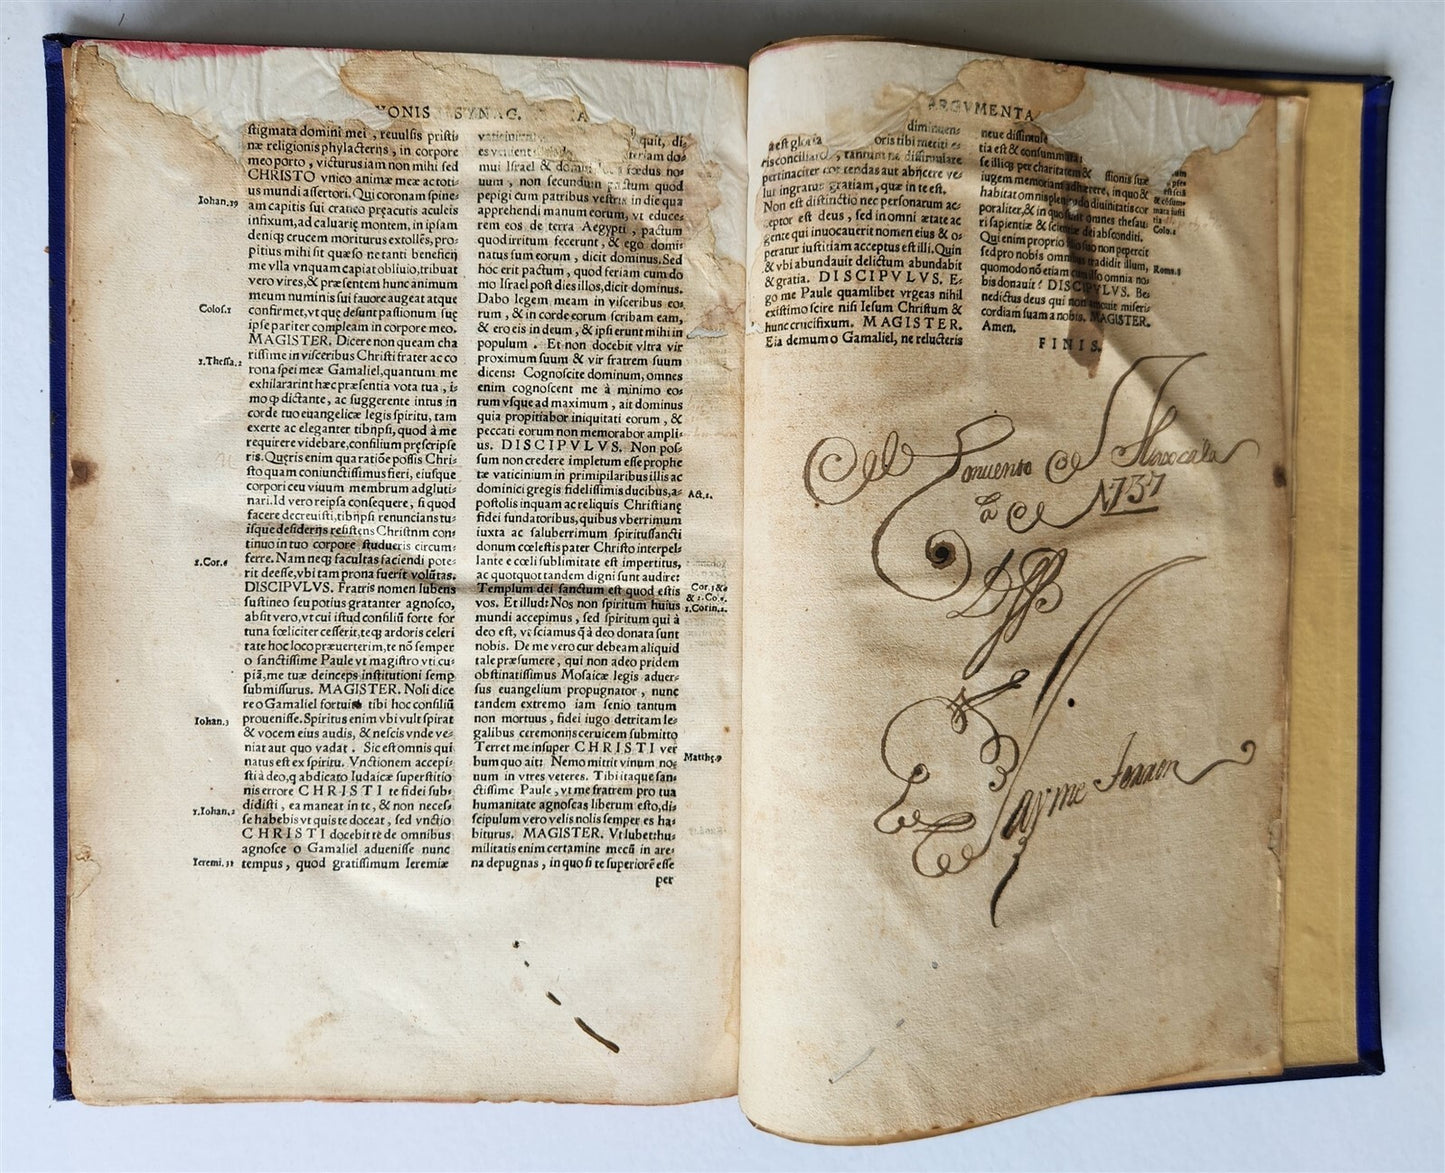 YONIS SYNAG.
stigmata domini mei, reuulsis pristi-
næ religionis phylacterijs, in corpore
meo porto, victurus iam non mihi sed
CHRISTO vnico animæ meæ ac toti-
us mundi assertori. Qui coronam spine-
Iohan.19
am capitis sui cratico pręacutis aculeis
infixum, ad caluarię montem, in ipsam
deniq; crucem moriturus extollēs, pro-
pitius mihi sit quæso ne tanti beneficij
me vlla vnquam capiat obliuio, tribuat
vero vires, & præsentem hunc animum
meum numinis sui fauore augeat atque
Colos.1
confirmet, vt quę desunt passionum suę
ipse pariter compleam in corpore meo.
MAGISTER. Dicere non queam cha
rissime in visceribus Christi frater ac co
1.Thessa.2
rona spei meæ Gamaliel, quantum me
exhilararint hæc præsentia vota tua, i-
mo q; dictante, ac suggerente intus in
corde tuo euangelicæ legis spiritu, tam
exerte ac eleganter tibijpsi, quod à me
requirere videbare, consilium pręscripse
ris. Quęris enim qua ratiōe possis Chri-
sto quam coniunctissimus fieri, eiusque
corpori ceu viuum membrum adgluti-
nari. Id vero reipsa consequere, si quod
facere decreuisti, tibijpsi renuncians tu-
isque desiderijs resistens Christum con-
tinuo in tuo corpore studueris circum-
1.Cor.6
ferre. Nam neq; facultas faciendi pote-
rit deesse, vbi tam prona fuerit volūtas.
DISCIPVLVS. Fratris nomen lubens
sustineo seu potius gratanter agnosco,
absit vero, vt cui istud consiliū forte for
tuna fœliciter cesserit, teq; ardoris celeri
tate hoc loco præuerterim, te nō semper
o sanctissime Paule vt magistro vti cu-
piā, me tuæ deinceps institutioni semp
submissurus. MAGISTER. Noli dice
re o Gamaliel fortuito tibi hoc consiliū
Iohan.3
prouenisse. Spiritus enim vbi vult spirat
& vocem eius audis, & nescis vnde ve-
niat aut quo vadat. Sic est omnis qui
natus est ex spiritu. Vnctionem accepi-
sti à deo, q abdicato Iudaicæ superstitio
nis errore CHRISTI te fidei sub-
1.Iohan.2
didisti, ea maneat in te, & non neces-
se habebis vt quis te doceat, sed vnctio
CHRISTI docebit te de omnibus
agnosce o Gamaliel aduenisse nunc
Ieremi.31
tempus, quod gratissimum Ieremiæ
quit, di-
feriam do-
mui Israel & fœdus no-
uum, non secundum pactum quod
pepigi cum patribus vestris in die qua
apprehendi manum eorum, vt educe-
rem eos de terra Aegypti, pactum
quod irritum fecerunt, & ego domi-
natus sum eorum, dicit dominus. Sed
hoc erit pactum, quod feriam cum do
mo Israel post dies illos, dicit dominus.
Dabo legem meam in visceribus eo-
rum, & in corde eorum scribam eam,
& ero eis in deum, & ipsi erunt mihi in
populum. Et non docebit vltra vir
proximum suum & vir fratrem suum
dicens: Cognoscite dominum, omnes
enim cognoscent me à minimo eo-
rum vsque ad maximum, ait dominus
quia propitiabor iniquitati eorum, &
peccati eorum non memorabor ampli-
us. DISCIPVLVS. Non pos-
sum non credere impletum esse prophe
tæ vaticinium in primipilaribus illis ac
dominici gregis fidelissimis ducibus, a-
Act.1.
postolis inquam ac reliquis Christianę
fidei fundatoribus, quibus vberrimum
iuxta ac saluberrimum spiritussancti
donum cœlestis pater Christo interpel-
lante e cœli sublimitate est impertitus,
ac quotquot tandem digni sunt audire:
Templum dei sanctum est quod estis
Cor.3&6
vos. Et illud: Nos non spiritum huius
1.Corin.2.
mundi accepimus, sed spiritum qui à
deo est, vt sciamus q̃ à deo donata sunt
nobis. De me vero cur debeam aliquid
tale præsumere, qui non adeo pridem
obstinatissimus Mosaicæ legis aduer-
sus euangelium propugnator, nunc
tandem extremo iam senio tantum
non mortuus, fidei iugo detritam le-
galibus ceremonijs ceruicem submitto
Terret me insuper CHRISTI ver
bum quo ait: Nemo mittit vinum no-
Matthę.9
num in vtres veteres. Tibi itaque san-
ctissime Paule, vt me fratrem pro tua
humanitate agnoscas liberum esto, di-
scipulum vero velis nolis semper es ha-
biturus. MAGISTER. Vt lubet: hu-
militatis enim certamine mecū in are-
na depugnas, in quo si te superiorē esse
per
ARGVMENTA
diminuen-
æ est gloria oris tibi meriti e-
ris conciliard, tantum ne dissimulare
pertinaciter contendas aut abijcere ve-
lut ingratus gratiam, quæ in te est.
Non est distinctio nec personarum ac-
ceptor est deus, sed in omni ætate ac
gente qui inuocauerit nomen eius & o-
peratur iustitiam acceptus est illi. Quin
& vbi abundauit delictum abundabit
& gratia. DISCIPVLVS. E-
go me Paule quamlibet vrgeas nihil
existimo scire nisi Iesum Christum &
hunc crucifixum. MAGISTER.
Eia demum o Gamaliel, ne relucteris
neue dissimule
tia est & consummata
se illiq; per charitatem & ssionis suæ
iugem memoriam adhærere, in quo &
habitat omnis plenitudo diuinitatis cor
poraliter, & in quo sunt omnes thesau-
ri sapientiæ & scientiæ dei absconditi.
Colo.2
Qui enim proprio filio suo non pepercit
sed pro nobis omnibus tradidit illum,
Roma.8
quomodo nō etiam cum illo omnia no-
bis donauit? DISCIPVLVS. Be-
nedictus deus qui non amouit miseri-
cordiam suam a nobis. MAGISTER.
Amen.
FINIS.
del Conuento de Tlaxcala
1737